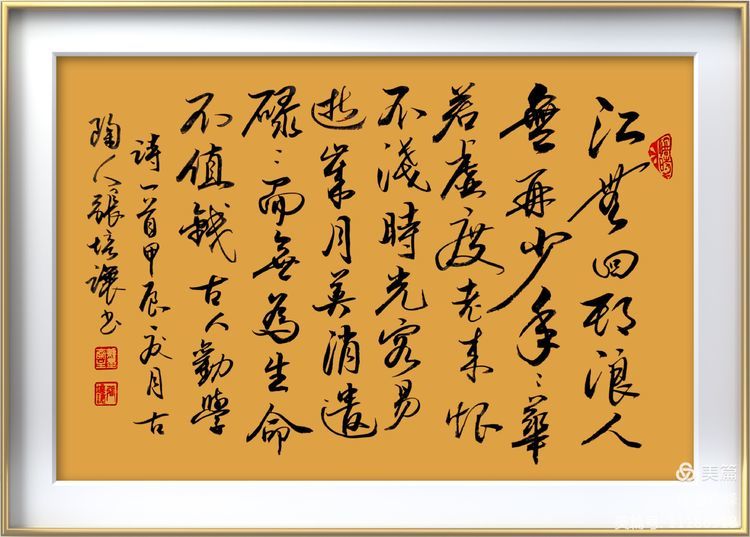 江無回頭浪人
無再少年〻華
若虛度老来恨
不淺時光容易
逝歲月莫消遣
碌〻而無為生命
不值錢古人勸學
詩一首甲辰夏月古
陶人張培讓書
美篇